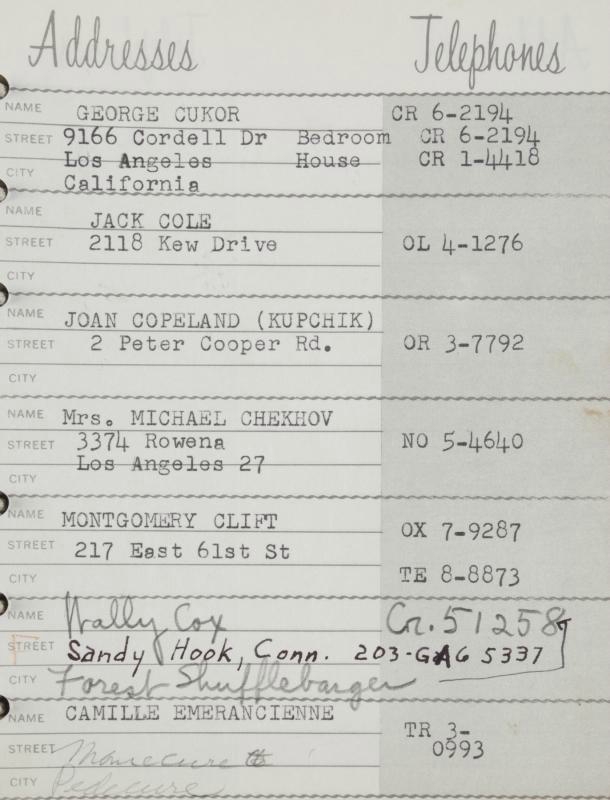 Addresses Telephones
NAME GEORGE CUKOR CR 6-2194
STREET 9166 Cordell Dr Bedroom CR 6-2194
Los Angeles House CR 1-4418
CITY California
NAME JACK COLE
STREET 2118 Kew Drive OL 4-1276
CITY
NAME JOAN COPELAND (KUPCHIK)
STREET 2 Peter Cooper Rd. OR 3-7792
CITY
NAME Mrs. MICHAEL CHEKHOV
STREET 3374 Rowena NO 5-4640
Los Angeles 27
CITY
NAME MONTGOMERY CLIFT OX 7-9287
STREET 217 East 61st St
CITY TE 8-8873
NAME Wally Cox Cr. 51258
STREET Sandy Hook, Conn. 203-GA6 5337
CITY Forest Shufflebarger
NAME CAMILLE EMERANCIENNE
TR 3-
0993
STREET Manecure
CITY Pedecure